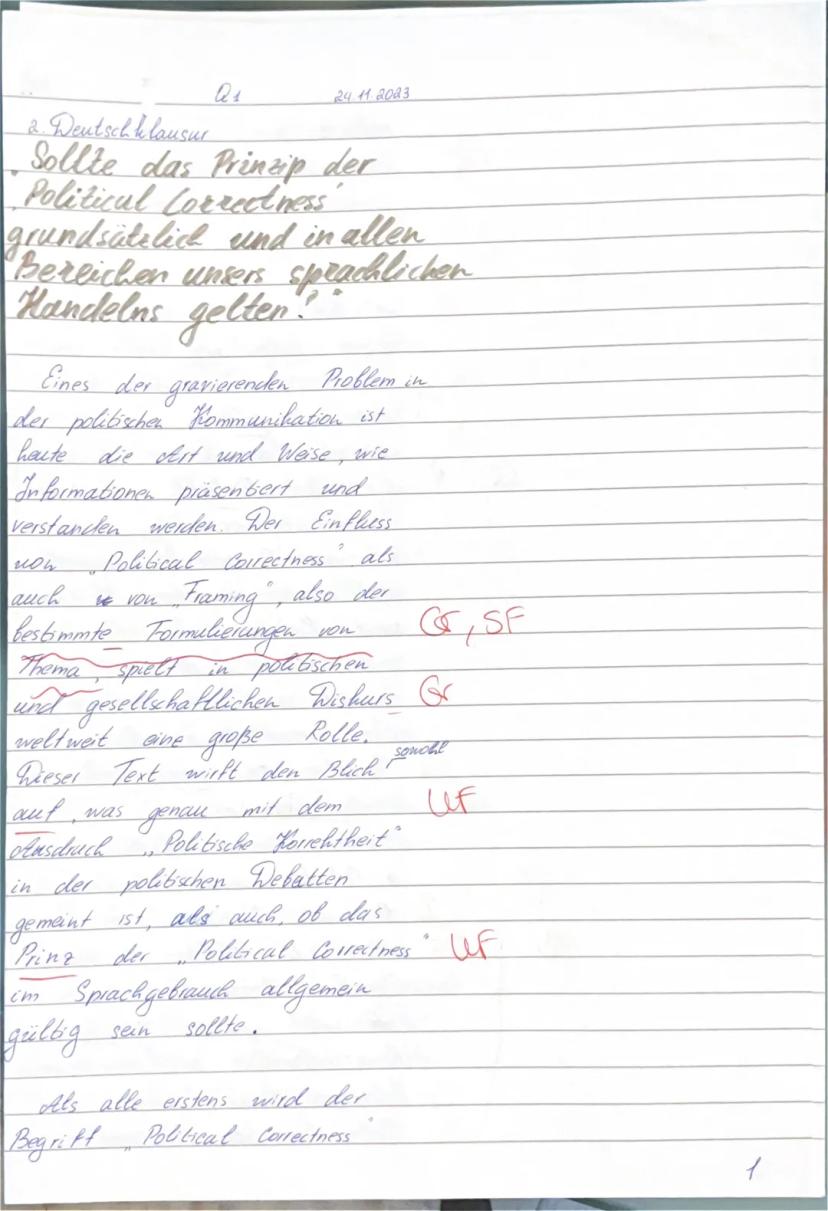 Q1 24.11.2023
2. Deutschklausur
„Sollte das Prinzip der
‚Political Correctness'
grundsätzlich und in allen
Bereichen unsers sprachlichen
Handelns gelten?"
Eines der gravierenden Problem in
der politischen Kommunikation ist
heute die Art und Weise, wie
Informationen präsentiert und
verstanden werden. Der Einfluss
von „Political Correctness" als
auch von „Framing", also der
bestimmte Formulierungen von Gr, SF
Thema, spielt in politischen
und gesellschaftlichen Diskurs Gr
weltweit eine große Rolle.
Dieser Text wirft den Blick sowohl
auf, was genau mit dem WF
Ausdruck „Politische Korrektheit"
in der politischen Debatten
gemeint ist, als auch, ob das
Prinz der „Political Correctness" WF
im Sprachgebrauch allgemein
gültig sein sollte.
Als alle erstens wird der
Begriff „Political Correctness"
1